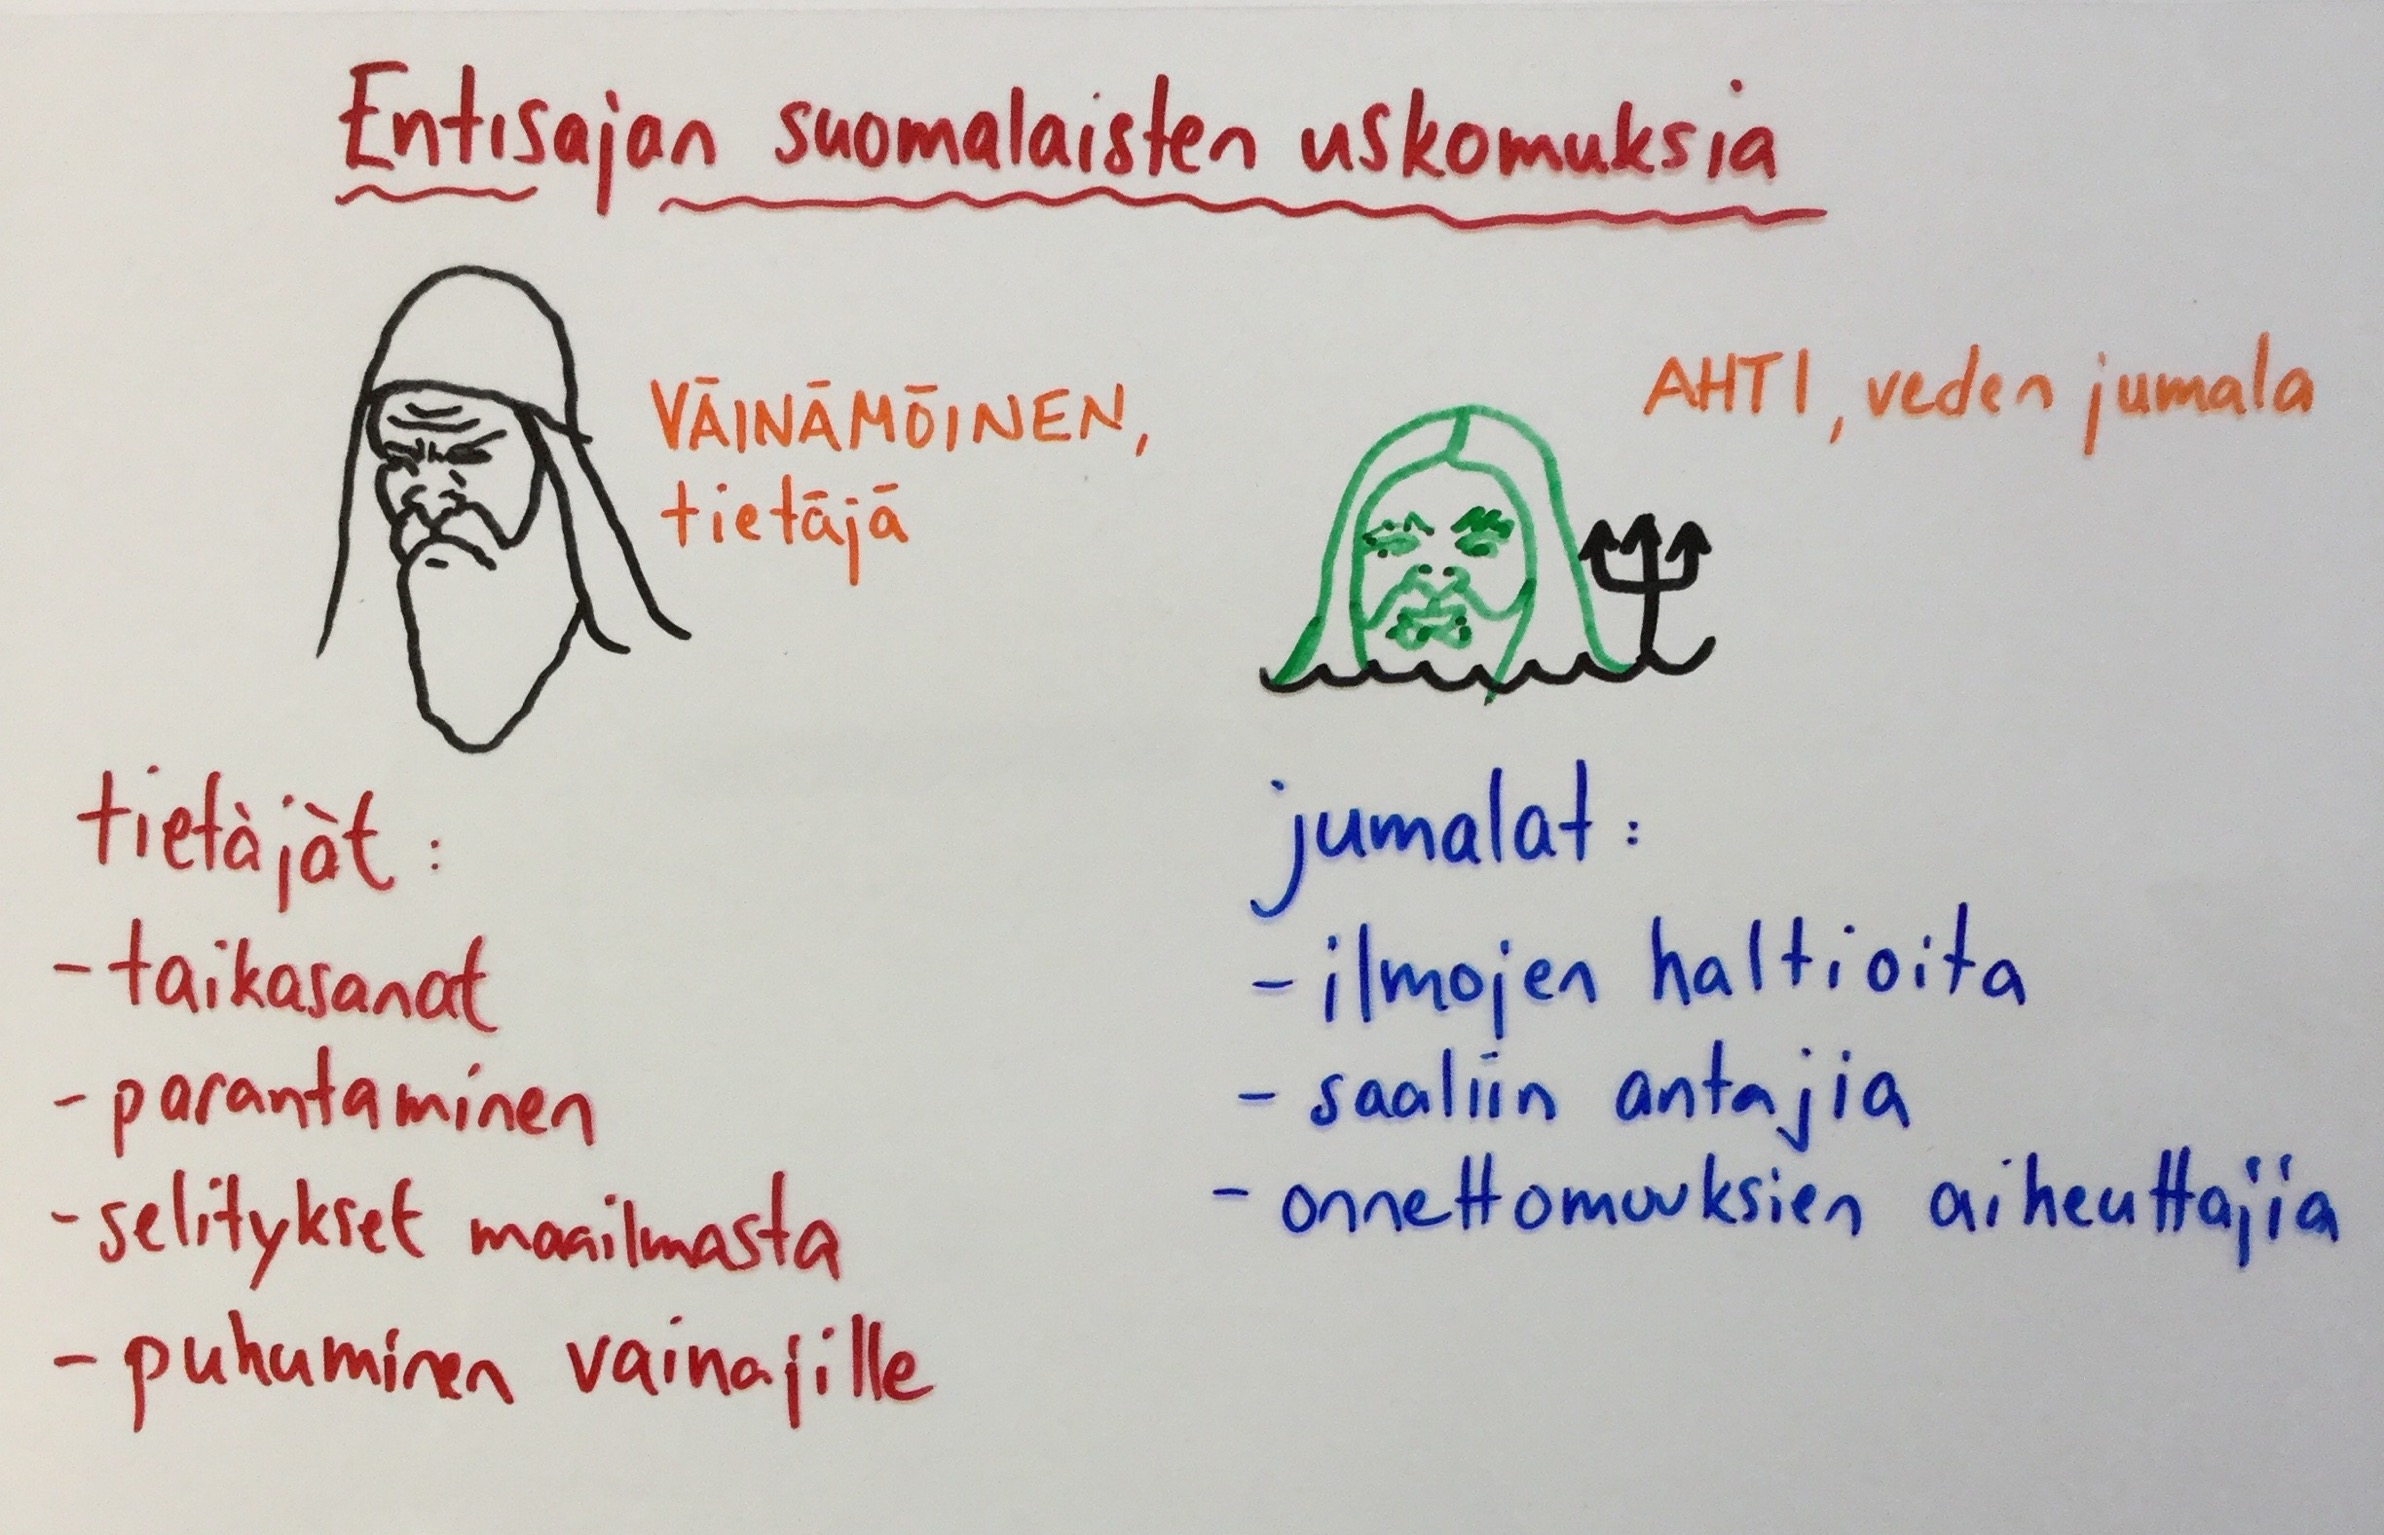 Entisajan suomalaisten uskomuksia
VÄINÄMÖINEN,
tietäjä
AHTI, veden jumala
tietäjät:
- taikasanat
- parantaminen
- selitykset maailmasta
- puhuminen vainajille
jumalat:
- ilmojen haltioita
- saaliin antajia
- onnettomuuksien aiheuttajia